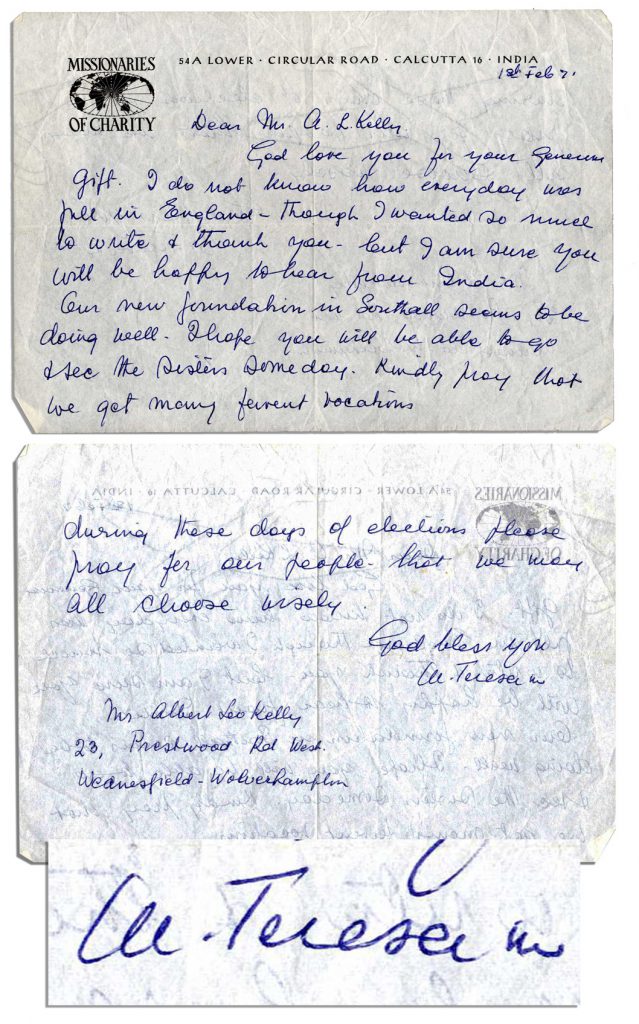 MISSIONARIES
OF CHARITY
54A LOWER · CIRCULAR ROAD · CALCUTTA 16 · INDIA
18th Feb 71
Dear Mr. A. L. Kelly
God love you for your Generous
Gift. I do not know how everyday was
full in England - though I wanted so much
to write & thank you - but I am sure you
will be happy to hear from India.
Our new foundation in Southall seems to be
doing well. I hope you will be able to go
& see the Sisters Someday. Kindly pray that
we get many fervent vocations
during these days of elections please
pray for our people - that we may
all choose wisely.
God bless you
M. Teresa mc
Mr. Albert Leo Kelly
23, Prestwood Rd West.
Wednesfield - Wolverhampton
M. Teresa mc